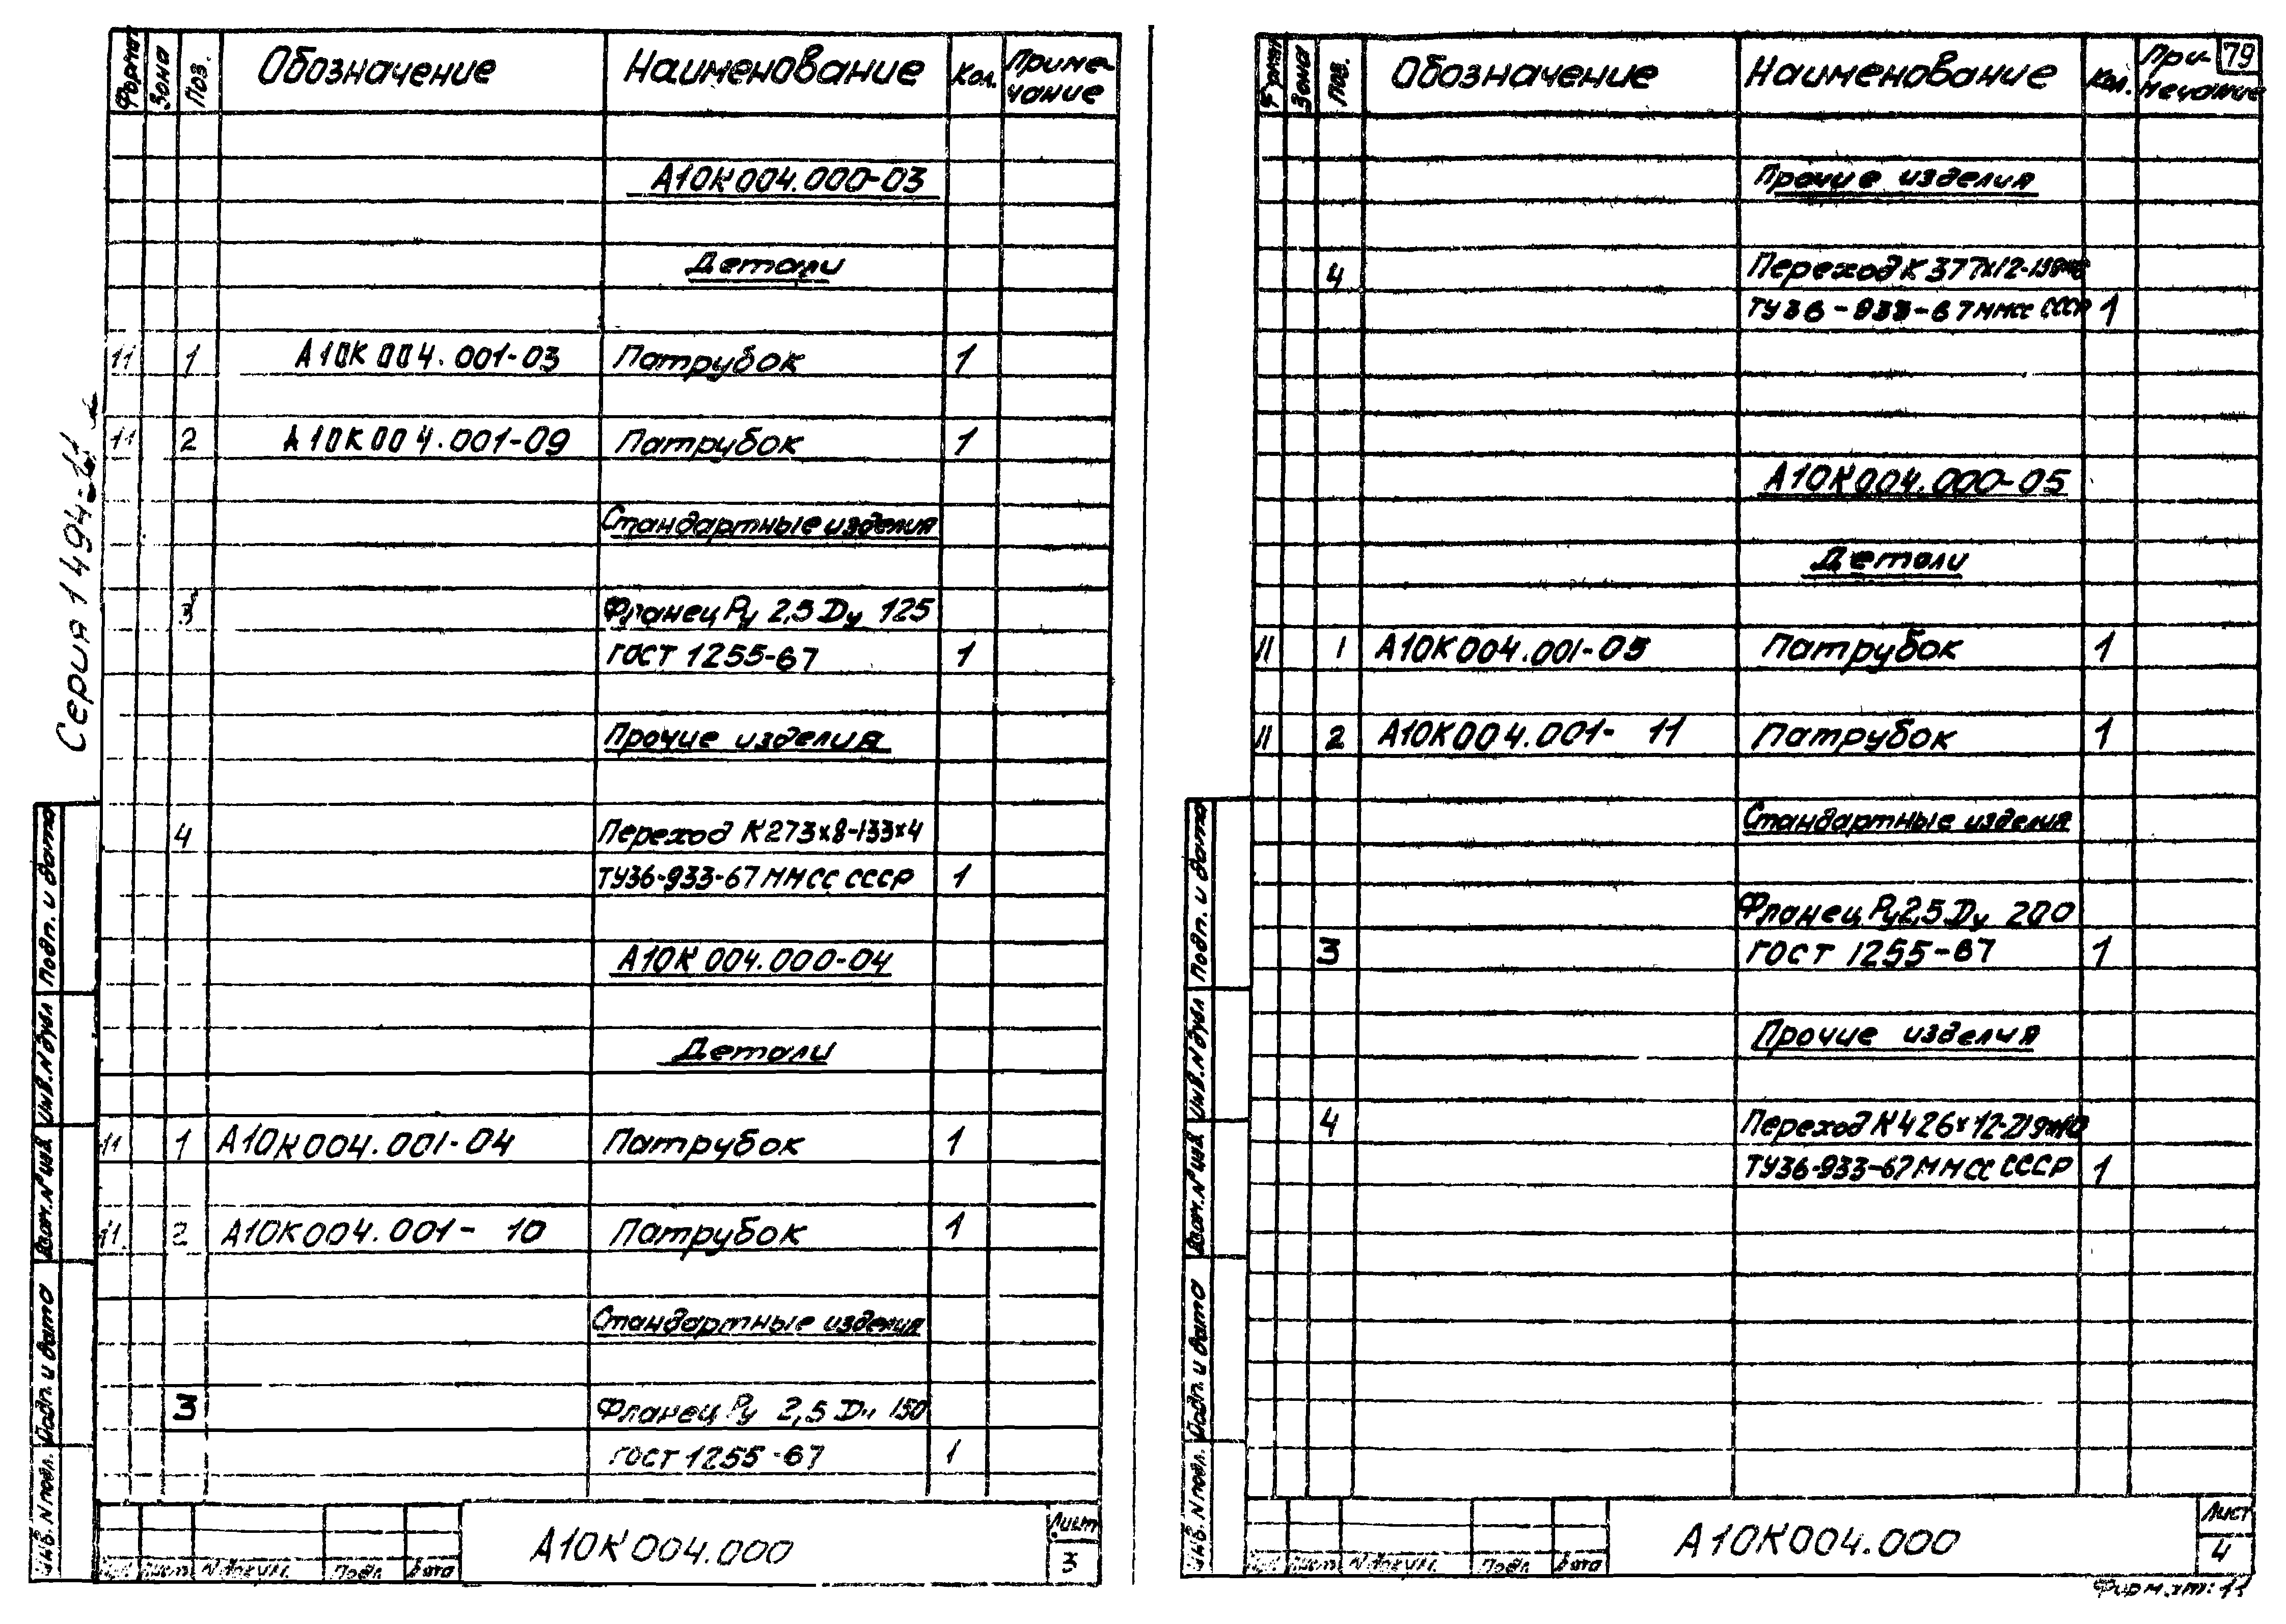 Серия 1.494-
Формат Зона Поз. Обозначение Наименование Кол. Приме-
чание
А10К004.000-03
Детали
11 1 А10К004.001-03 Патрубок 1
11 2 А10К004.001-09 Патрубок 1
Стандартные изделия
3 Фланец Ру 2,5 Ду 125
ГОСТ 1255-67 1
Прочие изделия
4 Переход К273х8-133х4
ТУ36-933-67 ММСС СССР 1
А10К004.000-04
Детали
11 1 А10К004.001-04 Патрубок 1
11 2 А10К004.001- 10 Патрубок 1
Стандартные изделия
3 Фланец Ру 2,5 Ду 150
ГОСТ 1255-67 1
Подп. и дата
Инв. N дубл
Взам. N инв.
Подп. и дата
Инв. N подл.
Лист N докум. Подп. Дата
А10К004.000
Лист
3
79
Зона Поз. Обозначение Наименование Кол. При-
мечание
Прочие изделия
4 Переход К 377х12-
ТУ36-933-67 ММСС СССР 1
А10К004.000-05
Детали
11 1 А10К004.001-05 Патрубок 1
11 2 А10К004.001- 11 Патрубок 1
Стандартные изделия
Фланец Ру 2,5 Ду 200
3 ГОСТ 1255-67 1
Прочие изделия
4 Переход К 426х12-219х10
ТУ36-933-67 ММСС СССР 1
Подп. и дата
Инв. N дубл
Взам. N инв.
Подп. и дата
Инв. N подл.
Лист N докум. Подп. Дата
А10К004.000
Лист
4
11